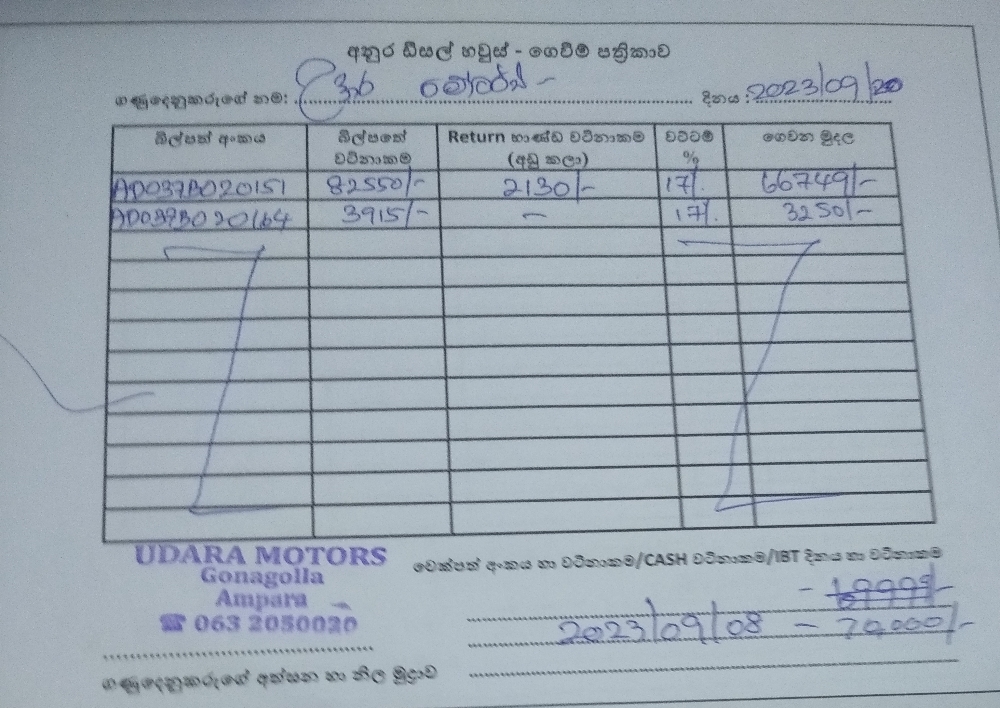 අනුර ඩීසල් හවුස් - ගෙවීම් පත්‍රිකාව
ගණුදෙනුකරුගේ නම: උදාර මෝටර්ස් - දිනය: 2023/09/20
බිල්පත් අංකය බිල්පතේ වටිනාකම Return භාණ්ඩ වටිනාකම (අඩු කලා) වට්ටම් % ගෙවන මුදල
AD037B020151 82550/- 2130/- 17% 66749/-
AD037B020164 3915/- - 17% 3250/-
UDARA MOTORS
Gonagolla
Ampara
☎ 063 2050020
චෙක්පත් අංකය හා වටිනාකම/CASH වටිනාකම/IBT දිනය හා වටිනාකම
- 69999/-
2023/09/08 - 70,000/-
ගණුදෙනුකරුගේ අත්සන හා නිල මුද්‍රාව